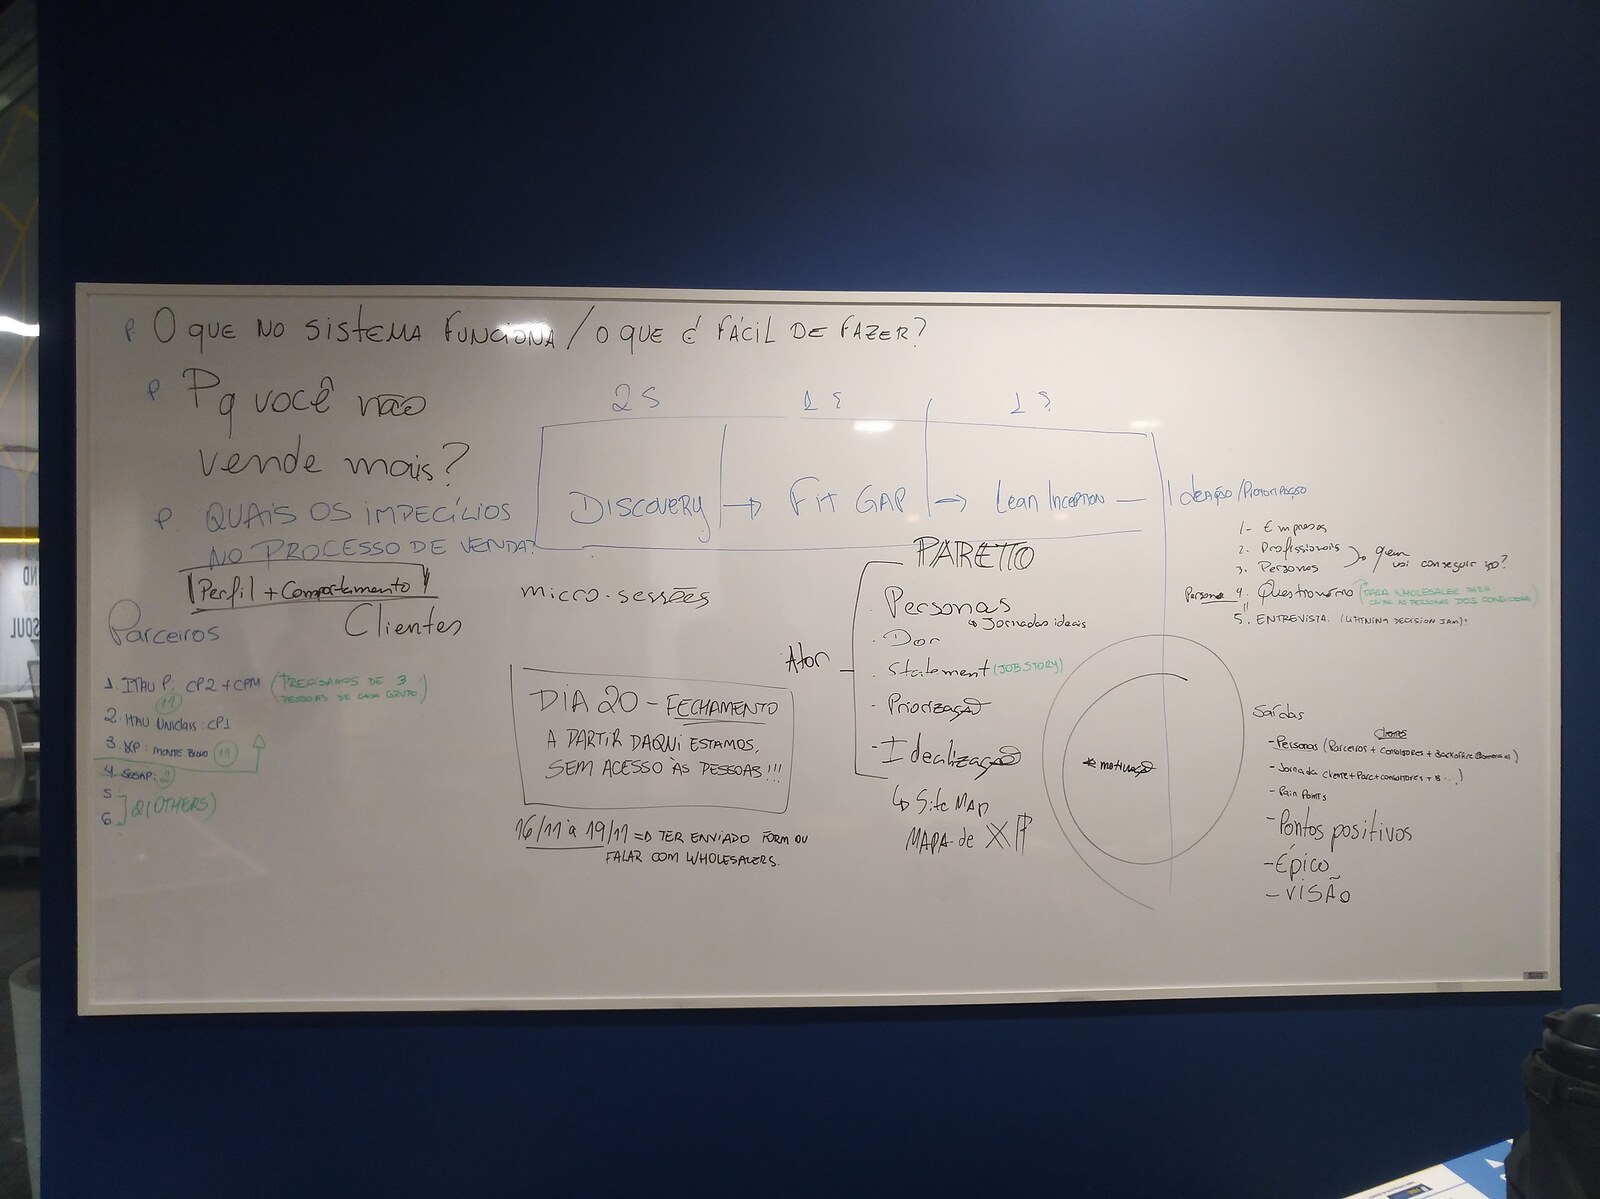 P. O que no sistema funciona / o que é fácil de fazer?
P Pq você não
vende mais?
P. QUAIS OS IMPECÍLIOS
NO PROCESSO DE VENDA?
Perfil + Comportamento
Parceiros
Clientes
1. ITAU P: CP2 + CPM (PRECISAMOS DE 3
PESSOAS DE CADA GRUPO)
11
2. ITAU Uniclass: CP1
3. XP: MONTE BRAVO 11
4.
5
6 2 (OTHERS)
2 S
1 S
1 S
DISCOVERY → FIT GAP → Lean Inception — Ideação/Prototipação
micro-sessões
DIA 20 - FECHAMENTO
A PARTIR DAQUI ESTAMOS,
SEM ACESSO ÀS PESSOAS!!!
16/11 a 19/11 => TER ENVIADO FORM OU
FALAR COM WHOLESALERS.
PARETTO
Ator
Personas
Jornadas ideais
- Dor
- Statement (JOB STORY)
- Priorização
- Idealização
↳ Site Map
MAPA de XP
* motivação
1- Empresas
2. Profissionais
3. Personas
quem vai conseguir isso?
Persona 4. Questionário (PARA WHOLESALER PARA
AS PERSONAS DOS
5. ENTREVISTA. (LIGHTNING DECISION JAM)
Saídas
Clientes
- Personas (Parceiros + consultores + Backoffice
- Jornada cliente + Parc + consultores + B...)
- Pain Points
- Pontos positivos
- Épico
- VISÃO